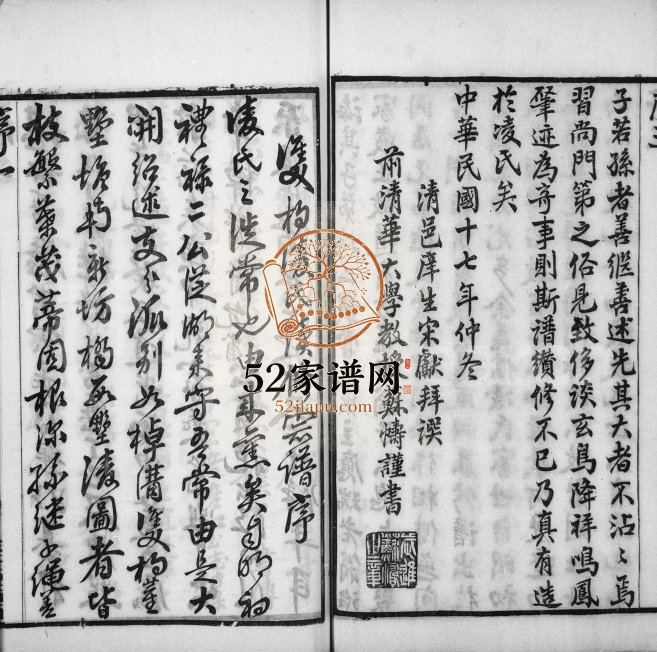 序三
子若孫者善繼善述先其大者不沾〻焉
習尚門第之俗見致侈談玄鳥降祥鳴鳳
肇迹為奇事則斯譜纘修不已乃真有造
於凌氏矣
中華民國十七年仲冬
清邑庠生宋獻拜譔
前清華大學教授蘇濤謹書
雙杓凌氏宗譜序
凌氏之從常也由來舊矣自明初
禮祿二公從湖來守吾常由是大
開紹述支分派別如棹溝雙杓崖
墅
坊橋 墅凌圖者皆
枝繁葉茂蒂固根深孫繼子繩
序一
52家谱网
52jiapu.com